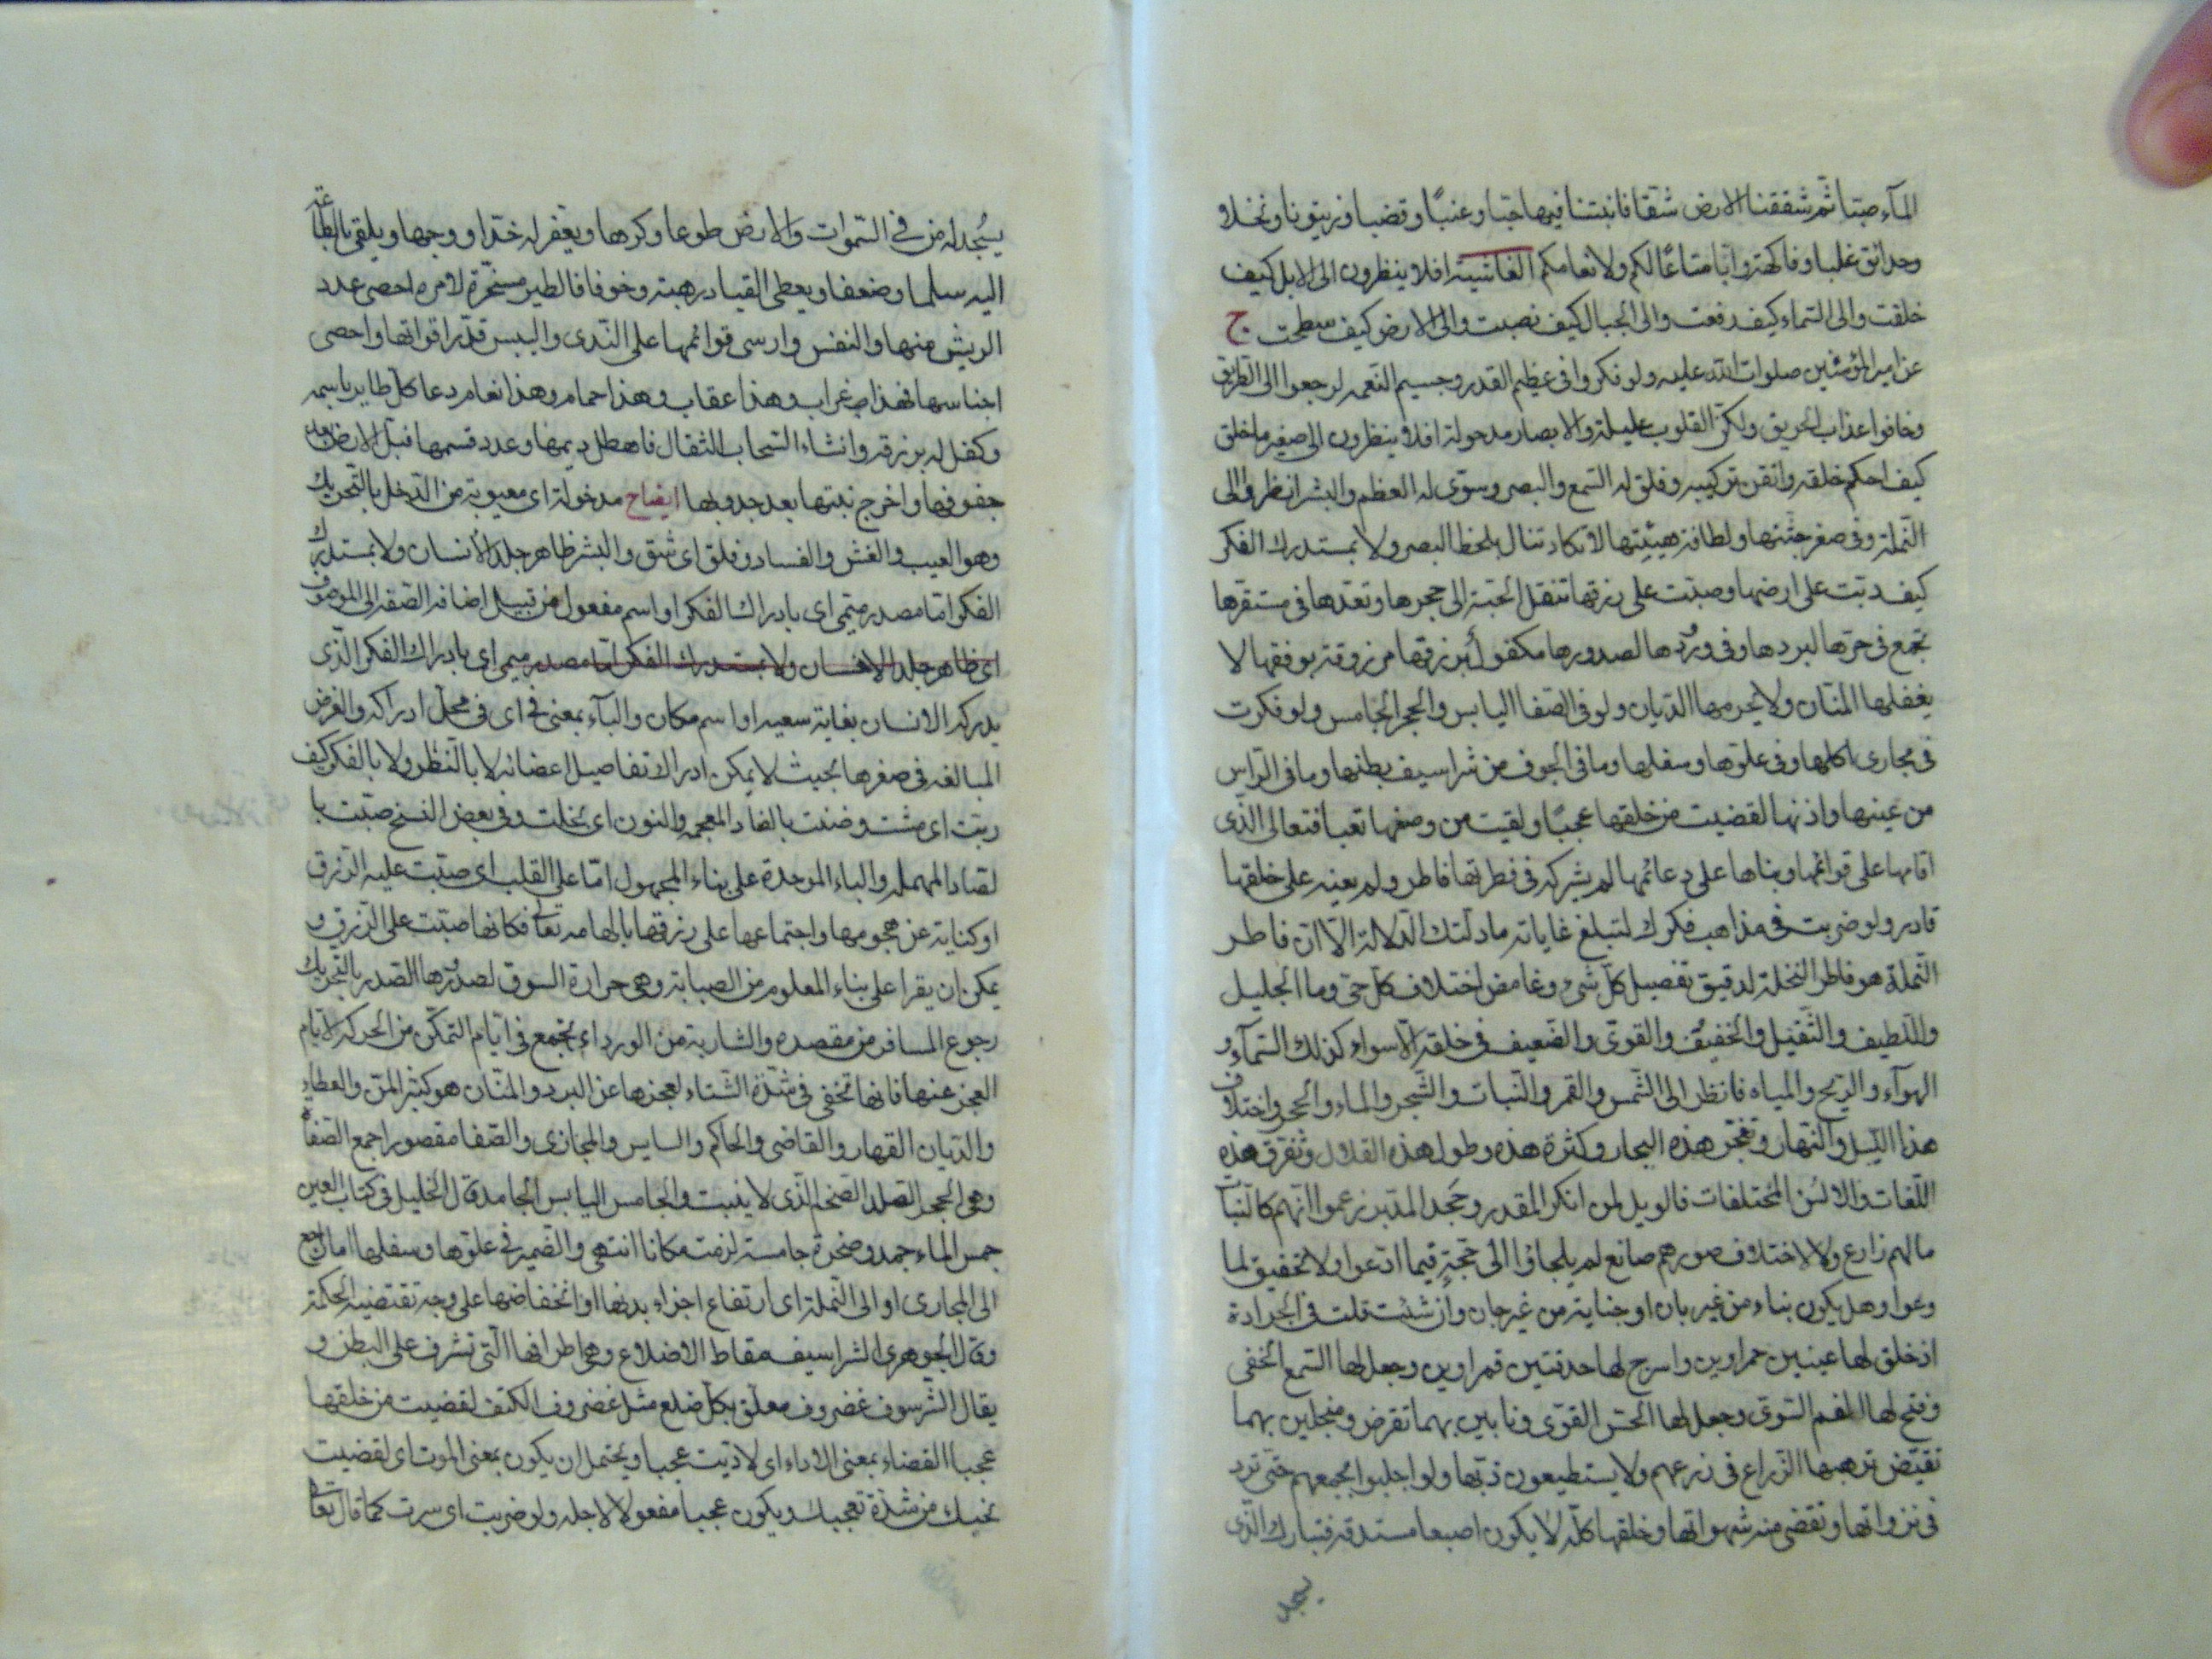 المآء صبتا ثم شققنا الارض شقا فانبتنا فيها حبا وعنبًا وقضبا وزيتونا ونخلا
وحدائق غلبا وفاكهة وابا متاعًا لكم ولانعامكم الغاشية افلا ينظرون الى الابل كيف
خلقت والى السماء كيف رفعت والى الجبال كيف نصبت والى الارض كيف سطحت ج
عن امير المؤمنين صلوات الله عليه ولو فكروا فى عظيم القدر وجسيم النعمه لرجعوا الى الطريق
وخافوا عذاب الحريق ولكن القلوب عليلة والابصار مدخولة افلا ينظرون الى صغير ما خلق
كيف احكم خلقه واتقن تركيبه وفلق له السمع والبصر وسوى له العظم والبشر انظروا الى
النملة وفى صغر جثتها ولطافة هيئتها لا تكاد تنال بلحظ البصر ولا بمستدرك الفكر
كيف دبت على ارضها وصبت على رزقها تنقل الحبة الى جحرها وتعدها فى مستقرها
تجمع فى حرها لبردها وفى وردها لصدورها مكفول برزقها مرزوقة بوفقها لا
يغفلها المنان ولا يحرمها الديان ولو فى الصفا اليابس والحجر الجامس ولو فكرت
فى مجارى اكلها وفى علوها وسفلها وما فى الجوف من شراسيف بطنها وما فى الراس
من عينها واذنها لقضيت من خلقها عجبًا ولقيت من وصفها تعبا فتعالى الذى
اقامها على قوائمها وبناها على دعائمها لم يشركه فى فطرتها فاطر ولم يعنه على خلقها
قادر ولو ضربت فى مذاهب فكرك لتبلغ غاياته ما دلتك الدلالة الا ان فاطر
النملة هو فاطر النخلة لدقيق تفصيل كل شىء وغامض اختلاف كل حى وما الجليل
واللطيف والثقيل والخفيف والقوى والضعيف فى خلقه الا سواء وكذلك السمآء و
الهوآء والريح والمياه فانظر الى الشمس والقمر والنبات والشجر والماء والحجر واختلاف
هذا الليل والنهار وتفجر هذه البحار وكثرة هذه وطول هذه القلال وتفرق هذه
اللغات والالسن المختلفات فالويل لمن انكر المقدر وجحد المدبر زعموا انهم كالنبات
ما لهم زارع ولا لاختلاف صورهم صانع لم يلجاؤا الى حجة فيما ادعوا ولا تحقيق لما
وعوا وهل يكون بناء من غير بان او جناية من غير جان وان شئت قلت فى الجرادة
اذ خلق لها عينين حمراوين واسرج لها حدقتين قمراوين وجعل لها السمع الخفى
وفتح لها الفم السوى وجعل لها الحس القوى ونابين بهما تقرض ومنجلين بهما
تقبض ترهبها الزراع فى زرعهم ولا يستطيعون ذبها ولو اجلبوا بجمعهم حتى ترد
فى نزواتها وتقضى منه شهواتها وخلقها كله لا يكون اصبعا مستدقة فتبارك الذى
يسجد
يسجد له من فى السموات والارض طوعا وكرها ويعفر له خدا ووجها ويلقى بالطاعة
اليه سلما وضعفا ويعطى القياد رهبته وخوفا فالطير مسخرة لامره احصى عدد
الريش منها والنفس وارسى قوائمها على الندى واليبس قدر اقواتها واحصى
اجناسها فهذا غراب وهذا عقاب وهذا حمام وهذا نعام دعا كل طاير باسمه
وكفل له برزقه وانشاء السحاب الثقال فاهطل ديمها وعدد قسمها فبل الارض بعد
جفوفها واخرج نبتها بعد جدوبها ايضاح مدخولة اى معيوبة من الدخل بالتحريك
وهو العيب والغش والفساد وفلق اى شق والبشر ظاهر جلد الانسان ولا بمستدرك
الفكر اما مصدر ميمى اى بادراك الفكر او اسم مفعول من قبيل اضافة الصفة الى الموصوف
اى ظاهر جلد الانسان ولا بمستدرك الفكر اما مصدر ميمى اى بادراك الفكر الذى
يدركه الانسان بغاية سعيه او اسم مكان والبآء بمعنى فى اى فى محل ادراكه والغرض
المبالغه فى صغرها بحيث لا يمكن ادراك تفاصيل اعضائه لا بالنظر ولا بالفكر كيف
دبت اى مشت وضنت بالضاد المعجمه والنون اى بخلت وفى بعض النسخ صبت با
لصاد المهمله والباء الموحدة على بناء المجهول اما على القلب اى صبت عليه الرزق
او كناية عن هجومها واجتماعها على رزقها بالهامه تعالى فكانها صبت على الرزق و
يمكن ان يقرا على بناء المعلوم من الصبابة وهى حرارة الشوق لصدورها الصدر بالتحريك
رجوع المسافر من مقصده والشاربة من الورد اى تجمع فى ايام التمكن من الحركه لايام
العجز عنها فانها تخفى فى شدة الشتاء لعجزها عن البرد والمنان هو كثير المن والعطاء
والديان القهار والقاضى والحاكم والسايس والمجازى والصفا مقصورا جمع الصفاة
وهى الحجر الصلد الضخم الذى لا ينبت والجامس اليابس الجامد قال الخليل فى كتاب العين
جمس الماء جمد وصخرة جامسة لزمت مكانا انتهى والضمير فى علوها وسفلها اما راجع
الى المجارى او الى النملة اى ارتفاع اجزاء بدنها او انخفاضها على وجه تقتضيه الحكمة
وقال الجوهرى الشراسيف مقاط الاضلاع وهى اطرافها التى تشرف على البطن و
يقال الشرسوف غضروف معلق بكل ضلع مثل غضروف الكتف لقضيت من خلقها
عجبا القضاء بمعنى الاداء اى لاديت عجبا ويحتمل ان يكون بمعنى الموت اى لقضيت
نحبك من شدة تعجبك ويكون عجبا مفعولا لاجله ولو ضربت اى سرت كما قال تعالى